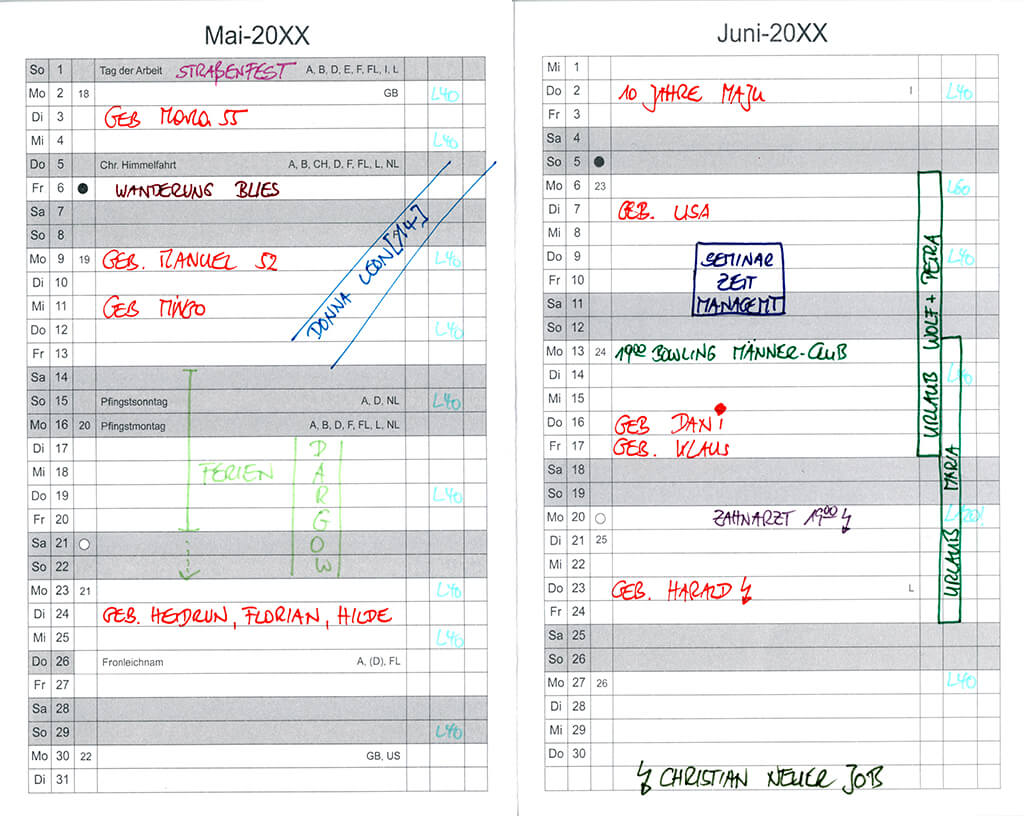 Mai-20XX
So 1 Tag der Arbeit STRAßENFEST A, B, D, E, F, FL, I, L
Mo 2 18 GB L40
Di 3 GEB MARIA 55
Mi 4 L40
Do 5 Chr. Himmelfahrt A, B, CH, D, F, FL, L, NL
Fr 6 WANDERUNG BLIES
Sa 7
So 8 F
Mo 9 19 GEB. MANUEL 52 L40
Di 10
Mi 11 GEB MIRJO
Do 12 L40
DONNA LEON [14-]
Fr 13
Sa 14
So 15 Pfingstsonntag A, D, NL L40
Mo 16 20 Pfingstmontag A, B, D, F, FL, L, NL
Di 17
Mi 18 FERIEN DARGOW
Do 19 L40
Fr 20
Sa 21
So 22
Mo 23 21 L40
Di 24 GEB. HEIDRUN, FLORIAN, HILDE
Mi 25 L40
Do 26 Fronleichnam A, (D), FL
Fr 27
Sa 28
So 29 L40
Mo 30 22 GB, US
Di 31
Juni-20XX
Mi 1
Do 2 10 JAHRE MAJU I L40
Fr 3
Sa 4
So 5
Mo 6 23 L60
Di 7 GEB. LISA
Mi 8
Do 9 SEMINAR L40
Fr 10 ZEIT
Sa 11 MANAGEMT
So 12
URLAUB WOLF + PETRA
Mo 13 24 1900 BOWLING MÄNNER-CLUB
Di 14 L40
Mi 15
Do 16 GEB DANI
Fr 17 GEB. KLAUS
Sa 18
So 19
URLAUB MARIA
Mo 20 ZAHNARZT 1900 L120!
Di 21 25
Mi 22
Do 23 GEB. HARALD L
Fr 24
Sa 25
So 26
Mo 27 26 L40
Di 28
Mi 29
Do 30
CHRISTIAN NEUER JOB